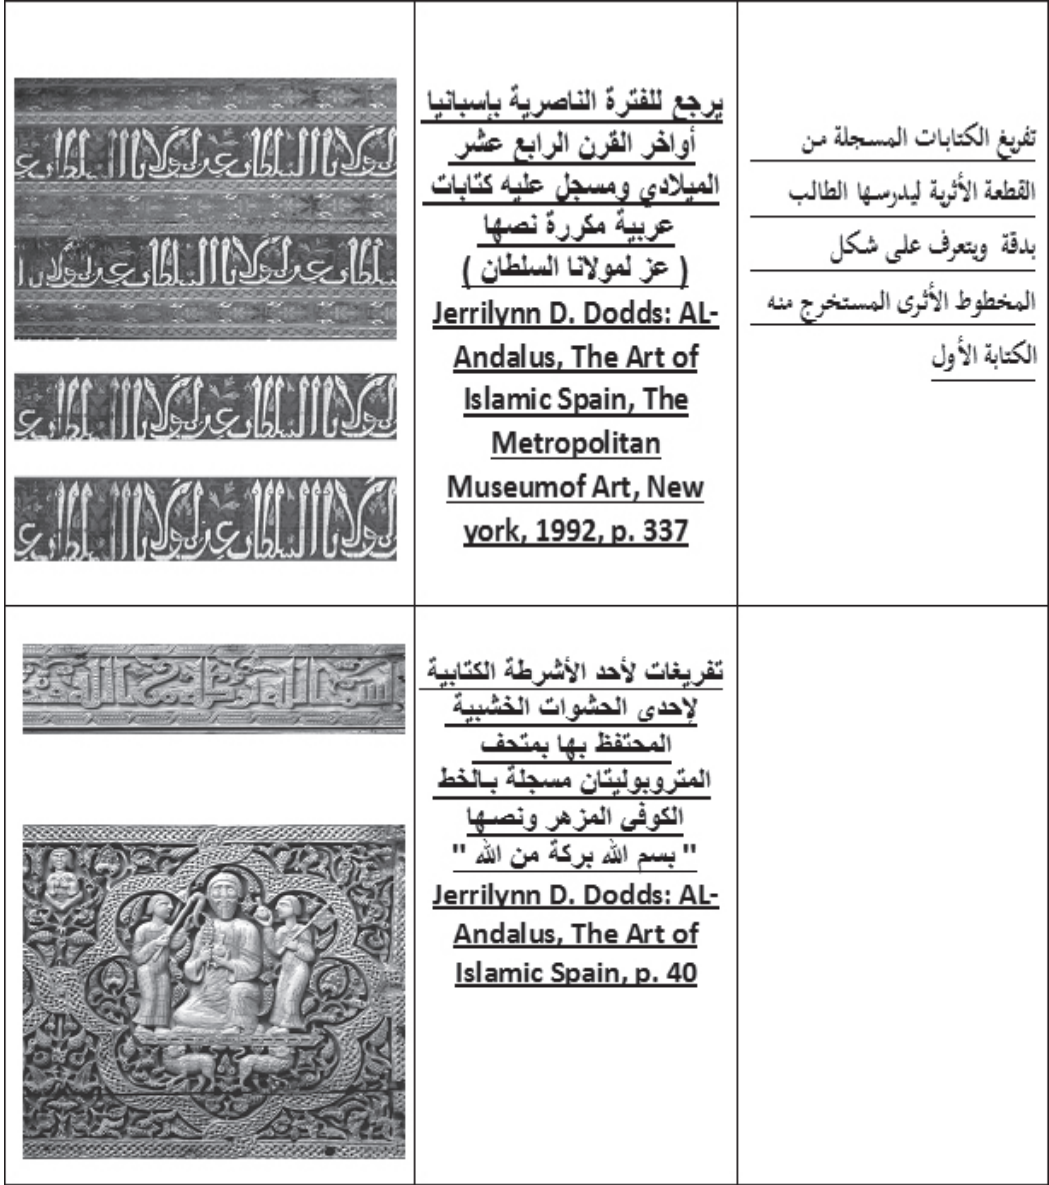 تفريغ الكتابات المسجلة من
القطعة الأثرية ليدرسها الطالب
بدقة ويتعرف على شكل
المخطوط الأثرى المستخرج منه
الكتابة الأول
يرجع للفترة الناصرية بإسبانيا
أواخر القرن الرابع عشر
الميلادي ومسجل عليه كتابات
عربية مكررة نصها
( عز لمولانا السلطان )
Jerrilynn D. Dodds: AL-
Andalus, The Art of
Islamic Spain, The
Metropolitan
Museumof Art, New
york, 1992, p. 337
عز لمولانا السلطان
عز لمولانا السلطان
عز لمولانا السلطان
عز لمولانا السلطان
تفريغات لأحد الأشرطة الكتابية
لإحدى الحشوات الخشبية
المحتفظ بها بمتحف
المتروبوليتان مسجلة بالخط
الكوفي المزهر ونصها
" بسم الله بركة من الله "
Jerrilynn D. Dodds: AL-
Andalus, The Art of
Islamic Spain, p. 40